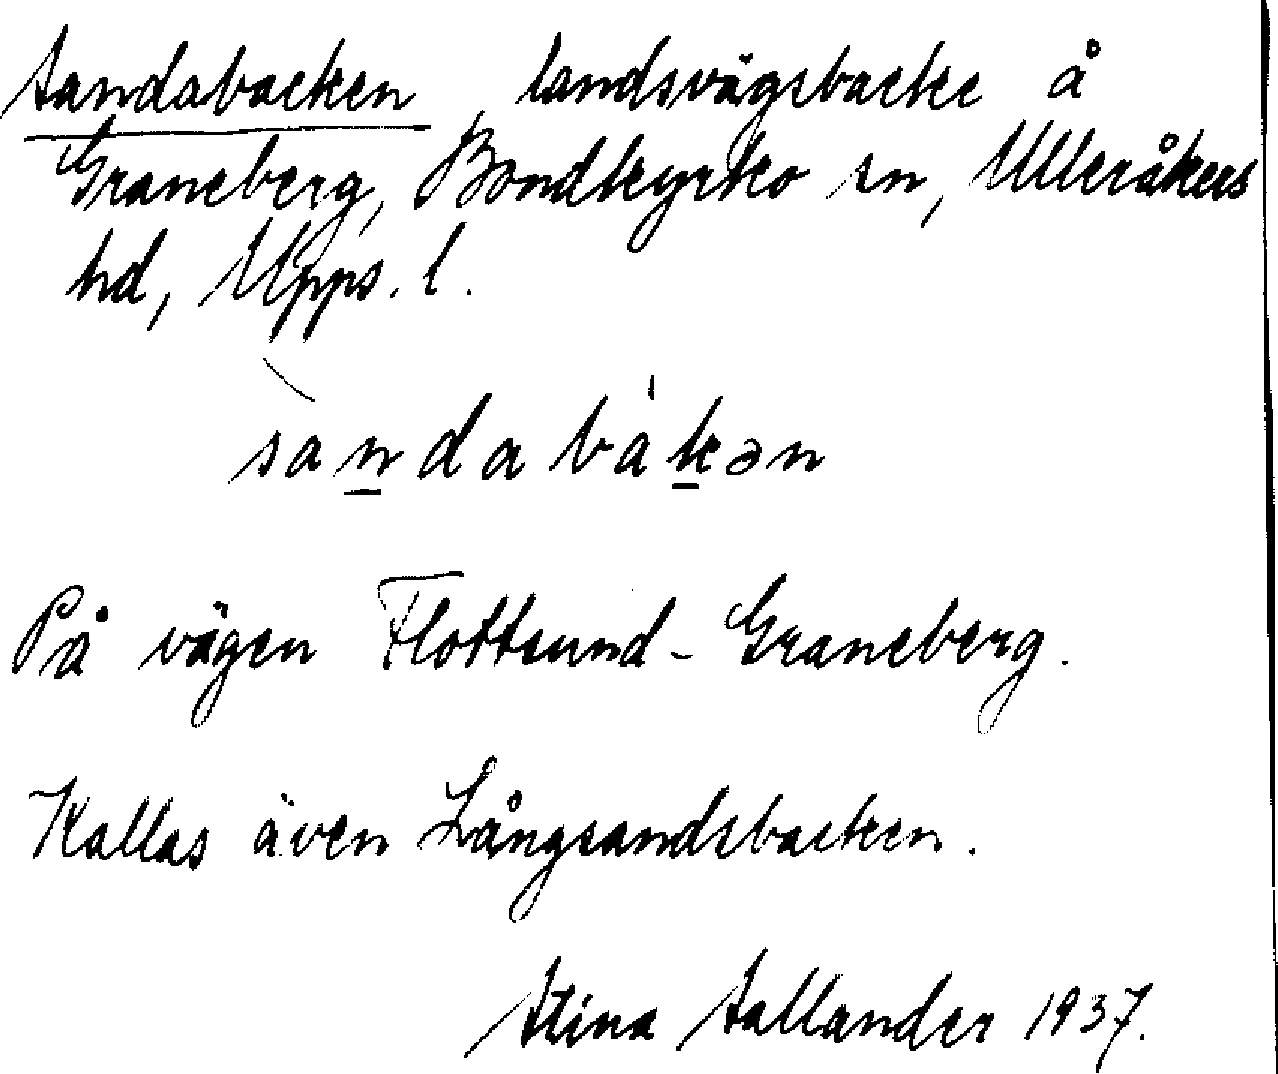 Sandabacken, landsvägsbacke å
Graneberg, Bondkyrko sn, Ulleråkers
hd, Upps. l.
sa̱ndabàḵən
På vägen Flottsund - Graneberg.
Kallas även Långsandsbacken.
Stina Sallander 1937.